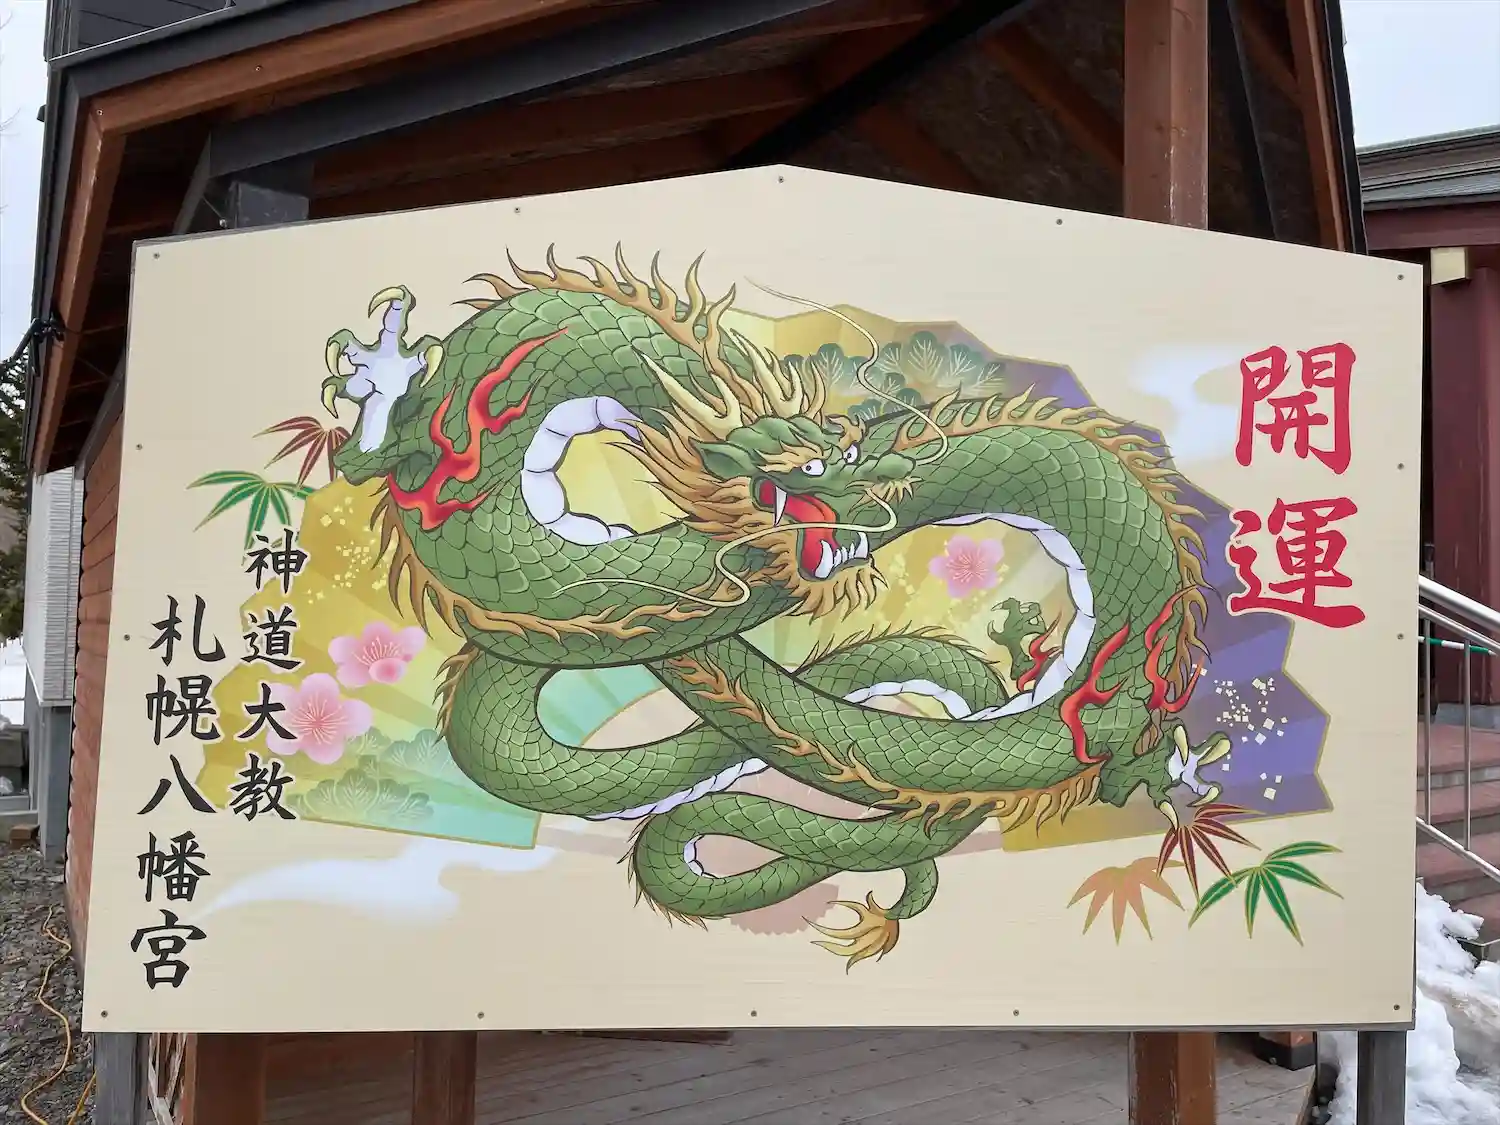 開運
神道大教
札幌八幡宮